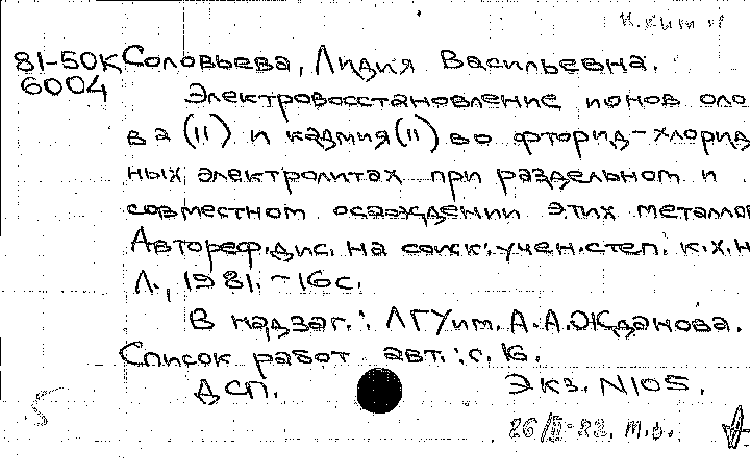 К.химия
81-50К Соловьева, Лидия Васильевна.
6004
Электровосстановление ионов оло
ва (II) и кадмия (II) во фторид-хлорид
ных электролитах при раздельном и
совместном осаждении этих металлов
Автореф. дис. на соиск. учен. степ. к.х.н
Л., 1981. - 16 с.
В надзаг.: ЛГУ им. А.А. Жданова.
Список работ авт.: с. 16.
ДСП. Экз. N105.